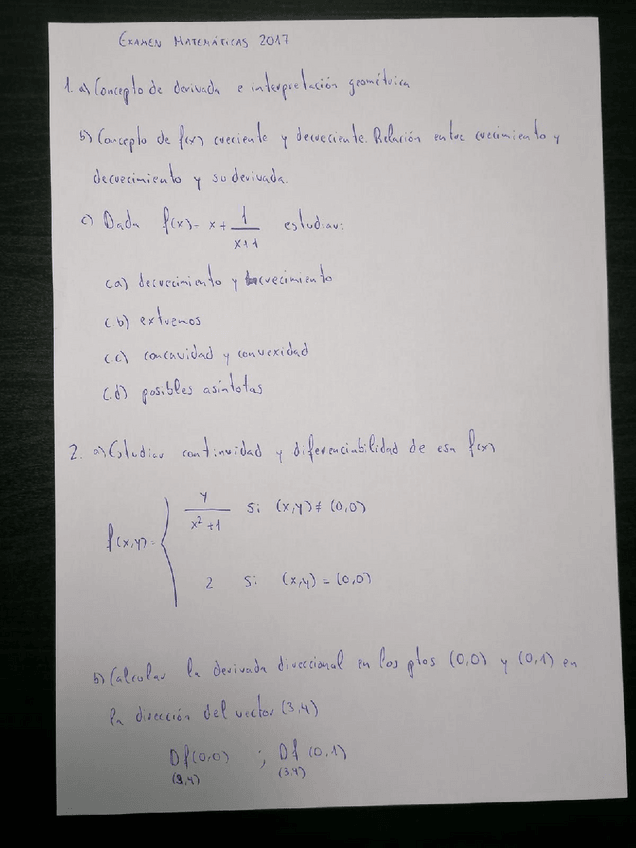 EXAMEN MATEMÁTICAS 2017
1. a) Concepto de derivada e interpretación geométrica
b) Concepto de f(x) creciente y decreciente. Relación entre crecimiento y
decrecimiento y su derivada.
c) Dada f(x) = x + 1/(x+1) estudiar:
c.a) decrecimiento y crecimiento
c.b) extremos
c.c) concavidad y convexidad
c.d) posibles asíntotas
2. a) Estudiar continuidad y diferenciabilidad de esa f(x)
f(x,y) = { y/(x²+1) si (x,y) ≠ (0,0)
2 si (x,y) = (0,0)
b) Calcular la derivada direccional en los ptos (0,0) y (0,1) en
la dirección del vector (3,4)
Df(0,0) ; Df(0,1)
(3,4) (3,4)